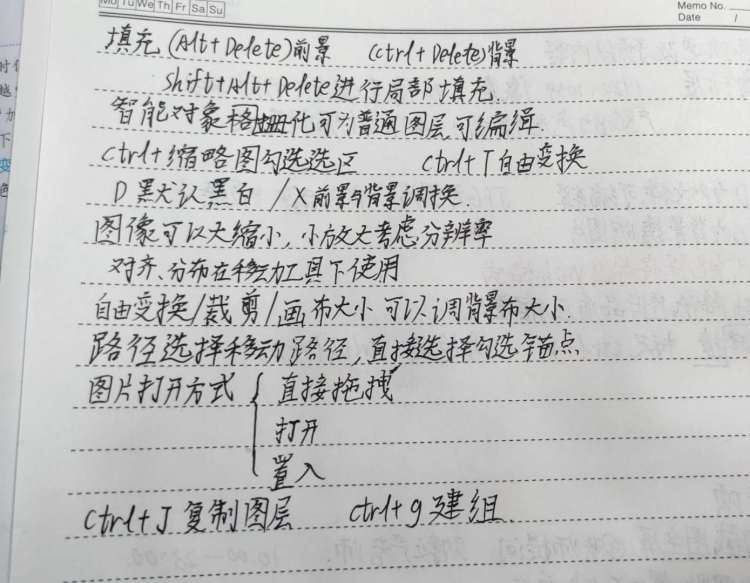 Mo Tu We Th Fr Sa Su
Memo No.
Date /
填充(Alt+Delete)前景 (ctrl+Delete)背景
Shift+Alt+Delete进行局部填充.
智能对象格栅化可为普通图层可编缉.
Ctrl+缩略图勾选选区 Ctrl+T自由变换
D 默认黑白 / X前景与背景调换.
图像可以大缩小,小放大考虑分辨率
对齐、分布在移动工具下使用
自由变换/裁剪/画布大小 可以调背景布大小.
路径选择移动路径,直接选择勾选锚点
图片打开方式 { 直接拖拽
打开
置入
Ctrl+J 复制图层 Ctrl+g建组.